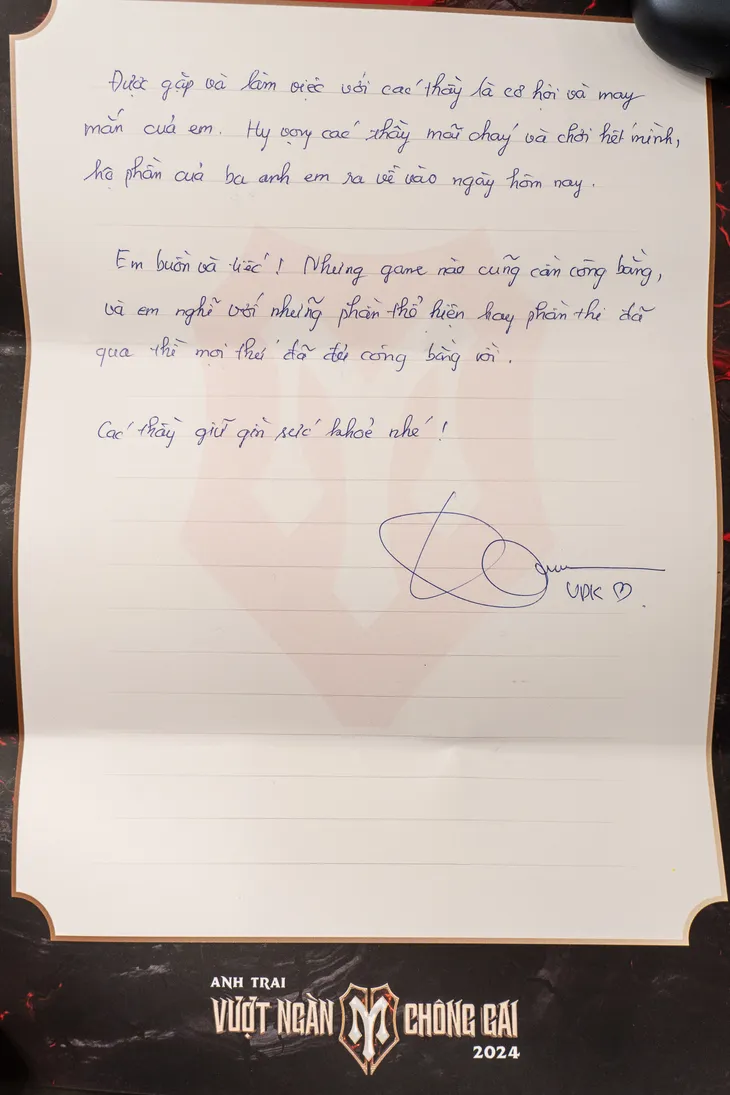 Được gặp và làm việc với các thầy là cơ hội và may
mắn của em. Hy vọng các thầy mãi cháy và chơi hết mình,
hộ phần của ba anh em ra về vào ngày hôm nay.
Em buồn và tiếc! Nhưng game nào cũng cần công bằng,
và em nghĩ với những phần thể hiện hay phần thi đã
qua thì mọi thứ đã đủ công bằng rồi.
Các thầy giữ gìn sức khoẻ nhé!
VDK
ANH TRAI
VƯỢT NGÀN CHÔNG GAI
2024